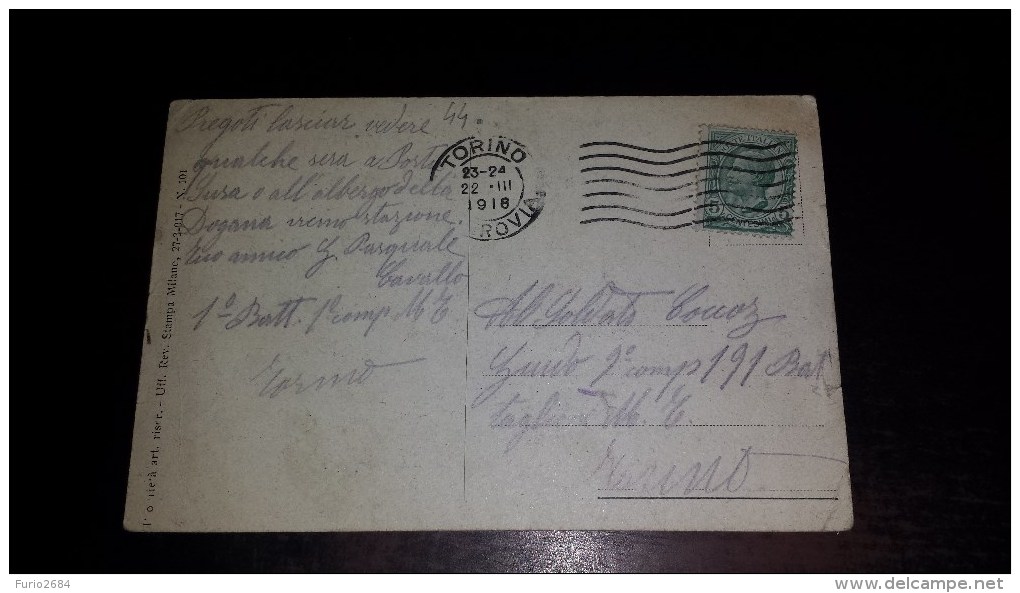 Pregoti lasciar vedere 44.
qualche sera a Porta
Susa o all'albergo della
Dogana vremo stazione.
tuo amico G Pasquale
Cavallo
1º Batt. 1ª comp. M T
Torino
TORINO
23-24
22 · III
1918
ROVIA
POSTE ITALIANE
5
Al Soldato
Guido 9ª comp 191 Batt
M. T.
Torino
Proprietà art. riser. - Uff. Rev. Stampa Milano, 27-3-917 - N. 101
Furio2684
www.delcampe.net